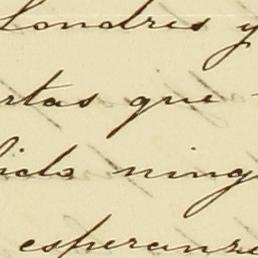 Londres y
rtas que
ido ning
esperanz